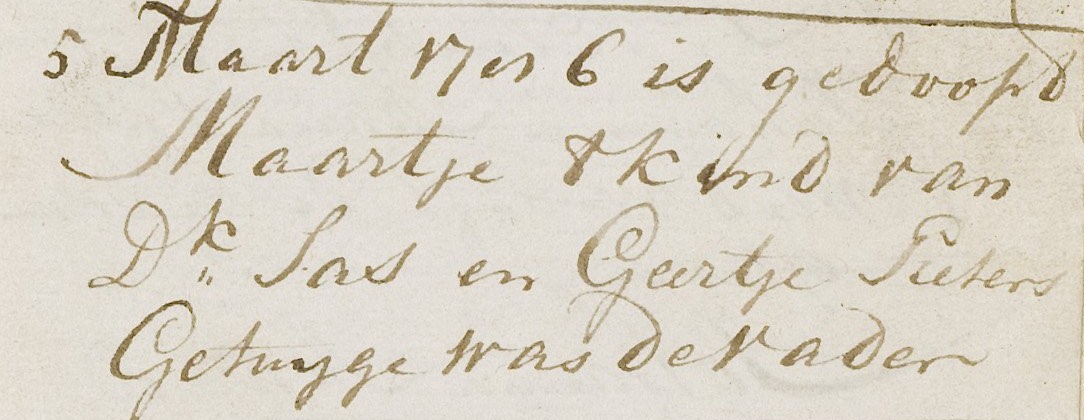 5 Maart 17 6 is gedoopd
Maartje t kind van
Dk Sas en Geertje Pieters
Getuyge was de vader